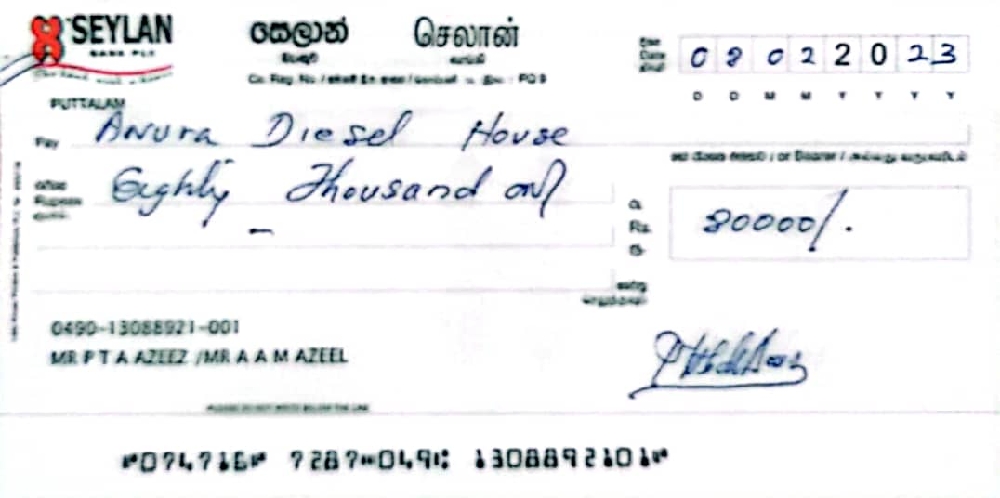 SEYLAN
BANK PLC
සෙලාන් செலான்
බැංකුව வங்கி
Date 08022023
D D M M Y Y Y Y
PUTTALAM
Pay Anura Diesel House
or Bearer
Rupees Eighty Thousand only
Rs. 80000/.
0490-13088921-001
MR P T A AZEEZ /MR A A M AZEEL
PLEASE DO NOT WRITE BELOW THIS LINE
⑈074716⑈ 7287⑉049⑆ 1308892101⑈